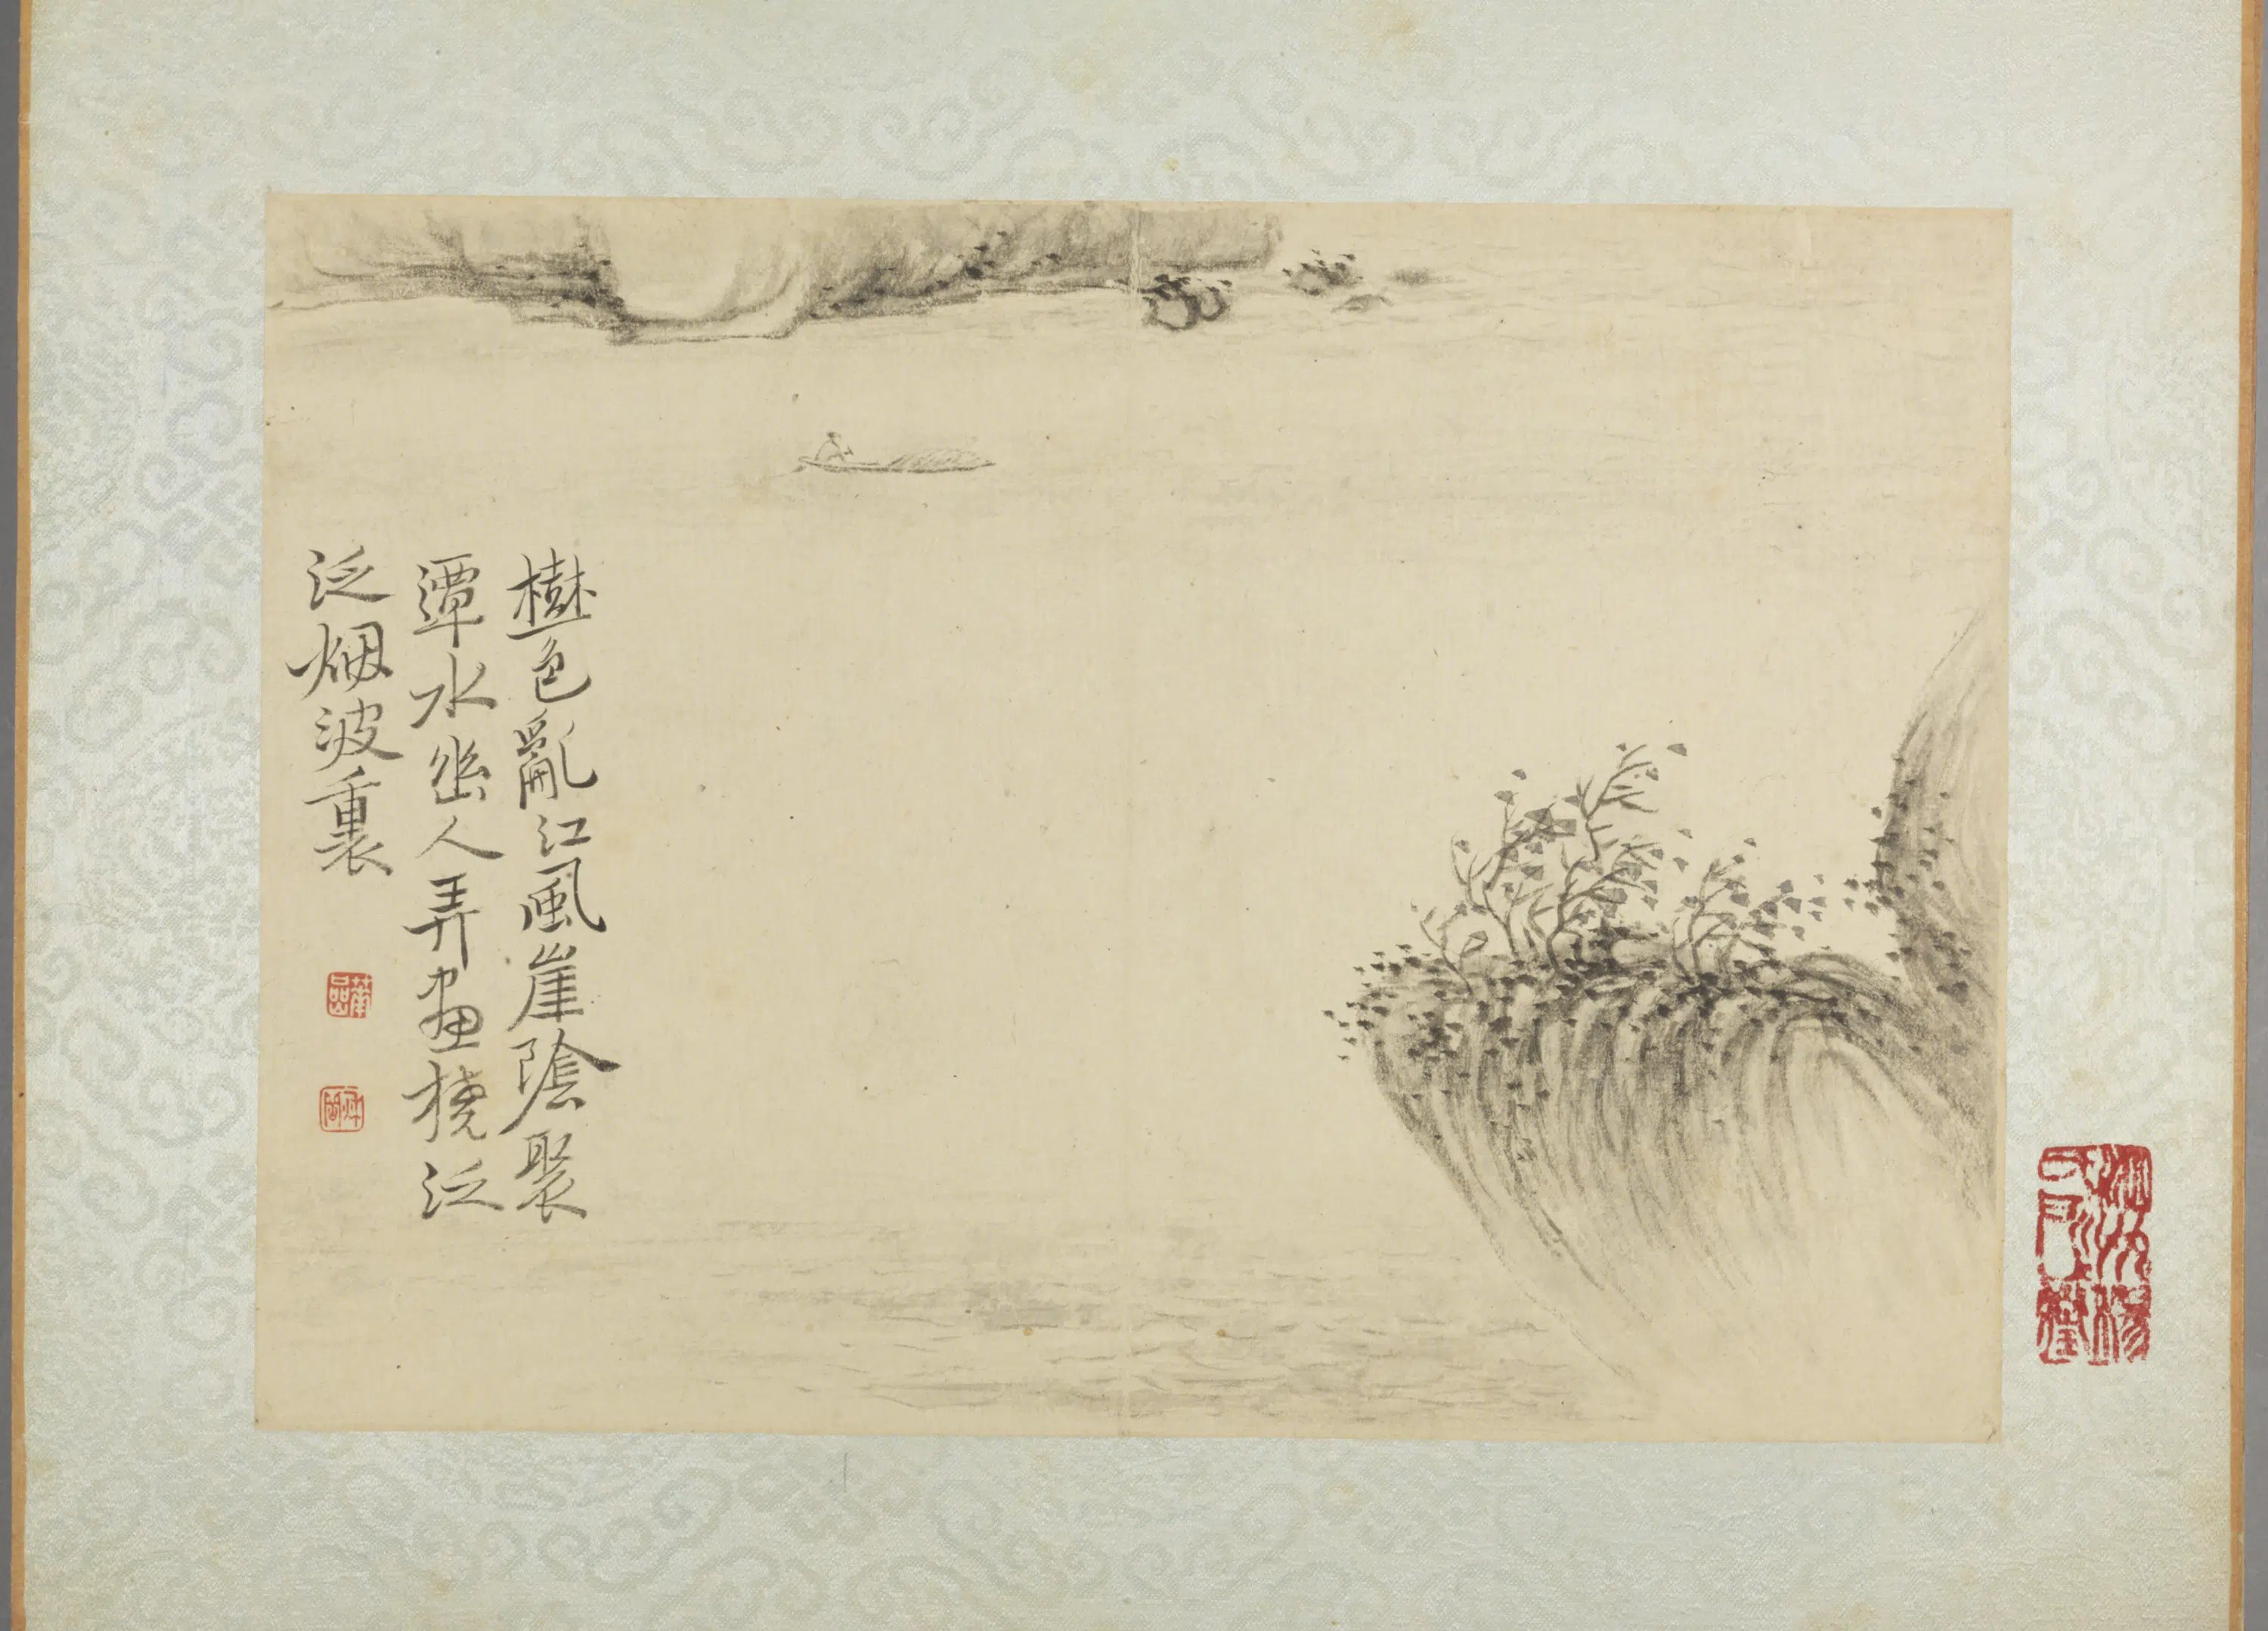 樹色亂江風崖陰聚
潭水幽人弄畫橈泛
泛烟波重裏
華嵒